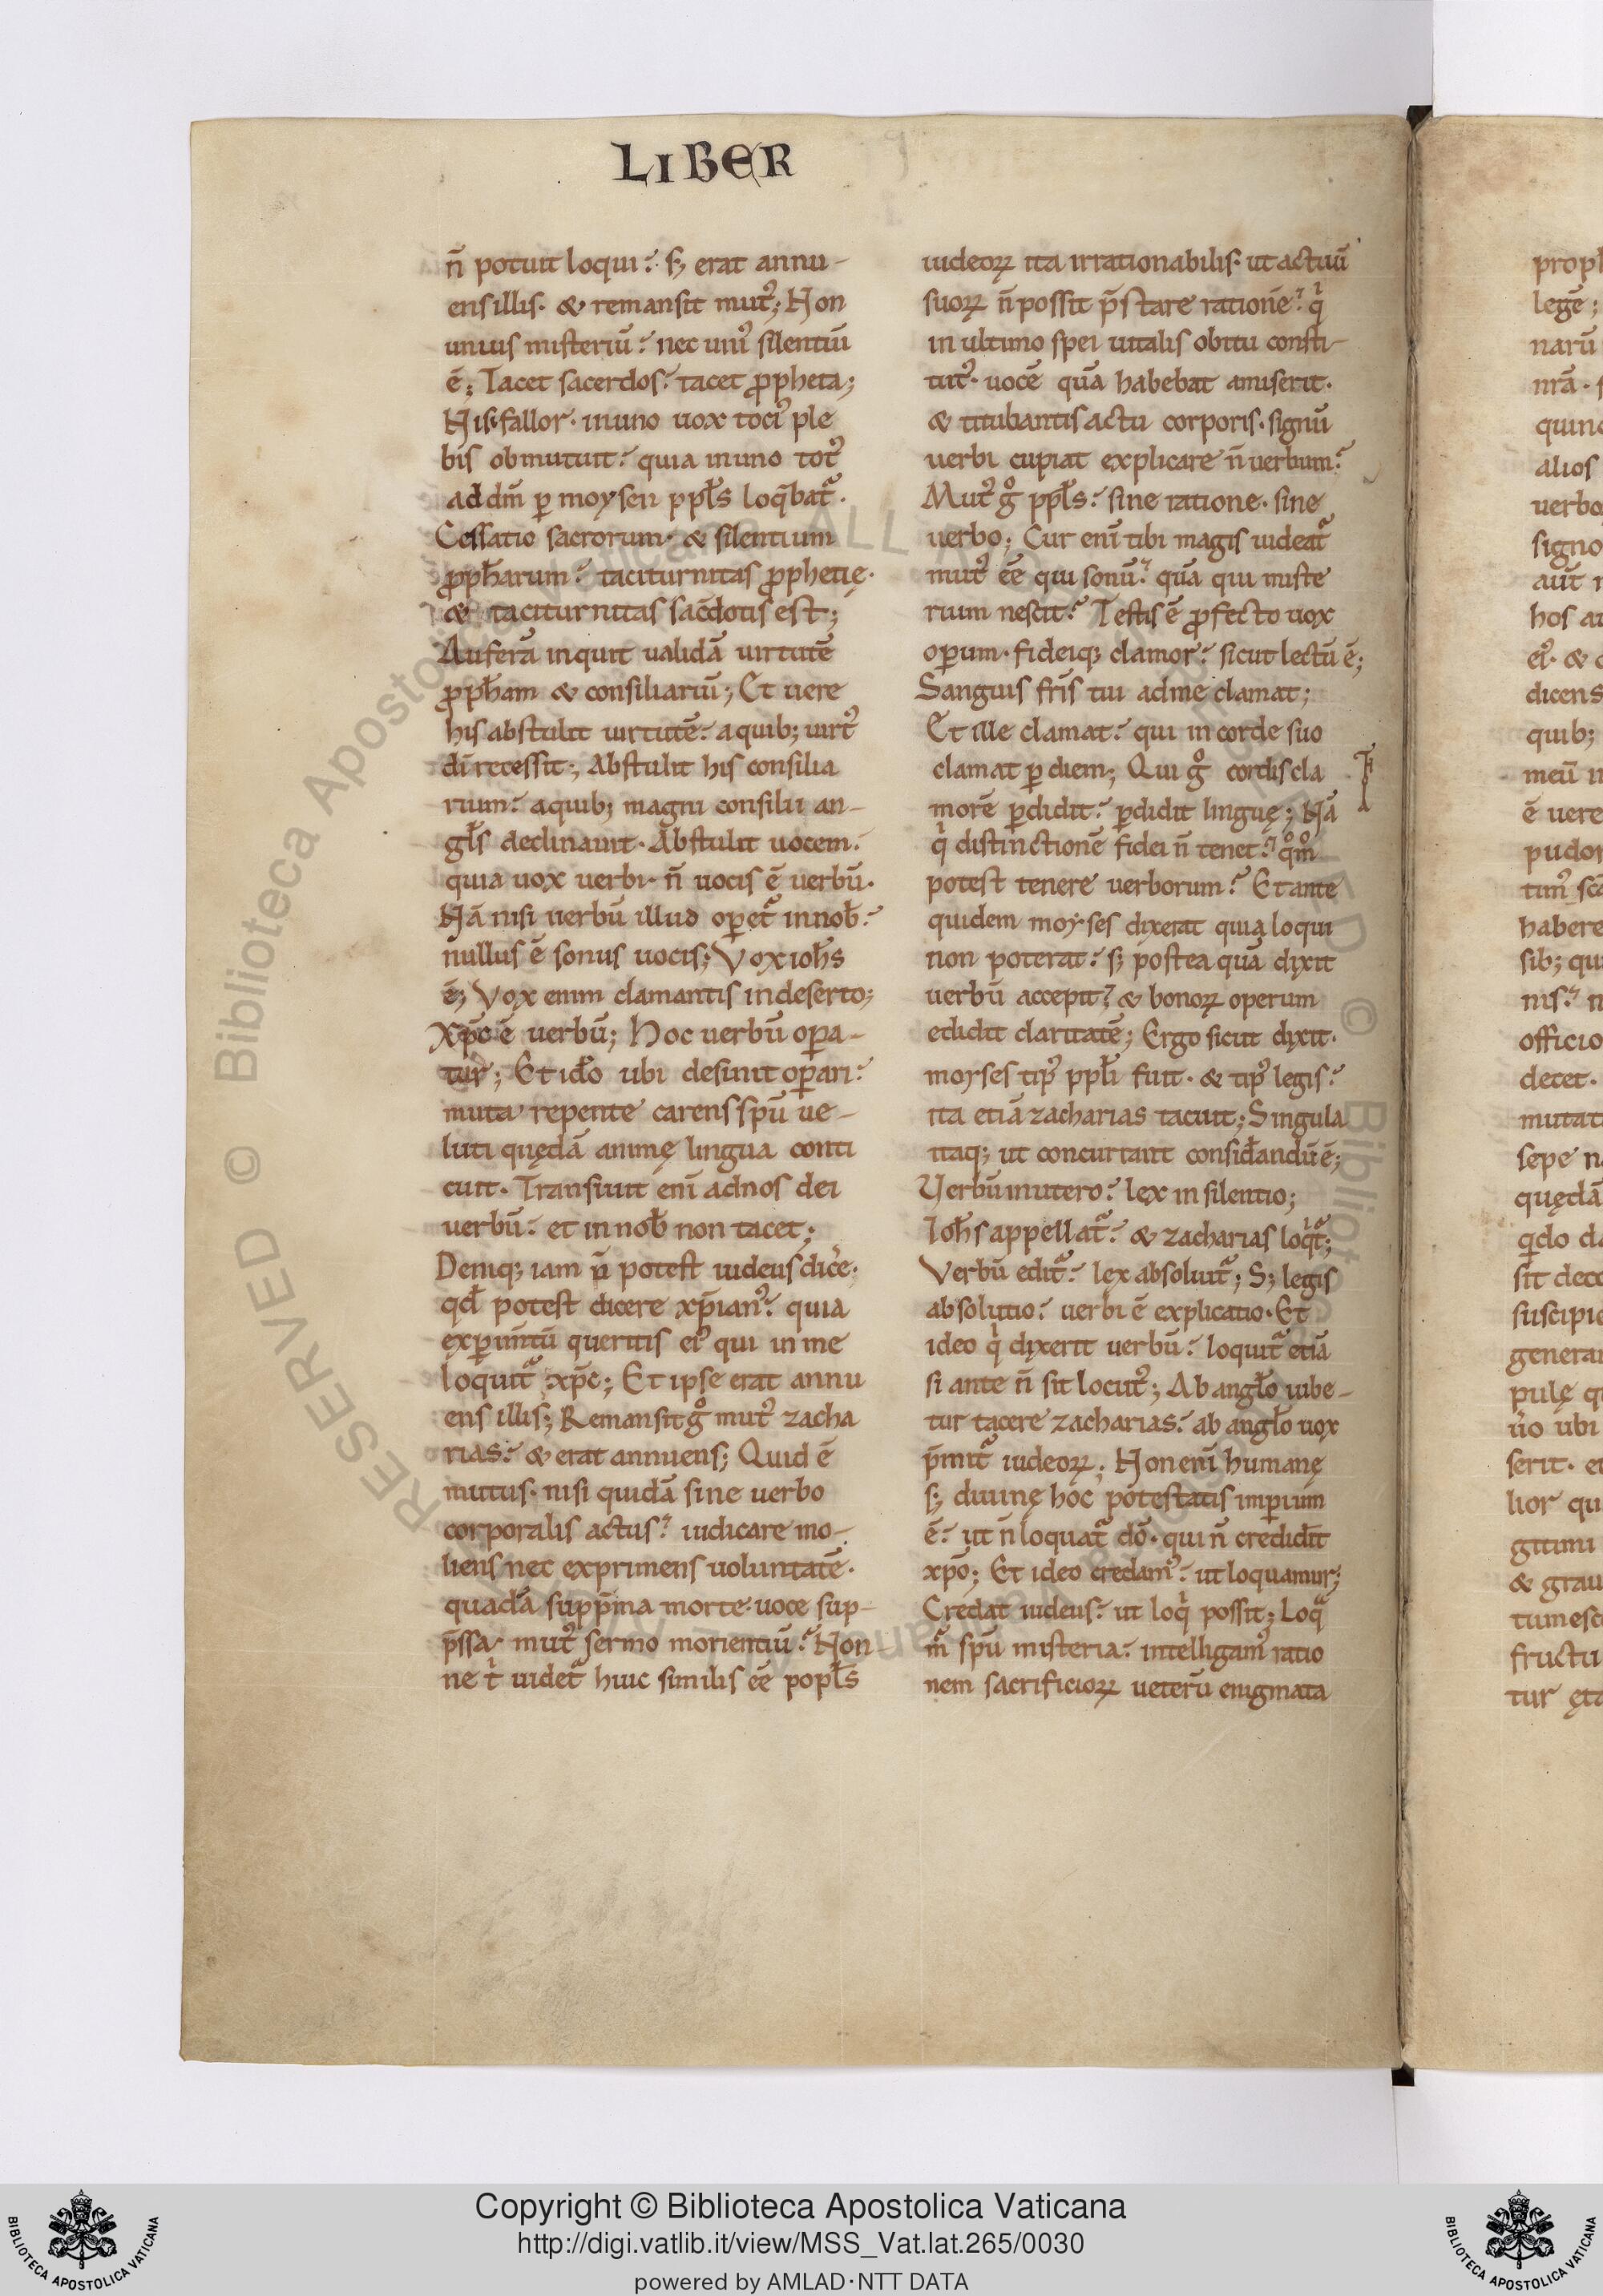 LIBER
n̄ potuit loqui? s; erat annu-
ens illis. & remansit mutꝰ; Non
unius misteriū? nec uniꝰ silentiū
ē; Tacet sacerdos? tacet ꝓpheta;
Nisi fallor. in uno uox totiꝰ ple
bis obmutuit? quia in uno totꝰ
ad dm̄ ꝑ moysen ppl̄s loq̄batᷓ.
Cessatio sacrorum. & silentium
ꝓph̄arum? taciturnitas ꝓphetię.
& taciturnitas sac̄dotis est;
Auferā inquit ualidā uirtutē
ꝓph̄am & consiliariū; Et uere
his abstulit uirtutē? a quib; uirtꝰ
dī recessit; Abstulit his consilia
rium? a quib; magni consilii an-
gl̄s declinauit. Abstulit uocem?
quia uox uerbi. n̄ uocis ē uerbū.
Nā nisi uerbū illud oꝑetᷓ in nob̄?
nullus ē sonus uocis; Vox ioh̄s
ē; Vox enim clamantis in deserto;
Xp̄c ē uerbū; Hoc uerbū oꝑa-
tur; Et id̄o ubi desinit oꝑari?
muta repente carens sp̄u ue-
luti quędā animę lingua conti
cuit. Transiuit enī ad nos dei
uerbū? et in nob̄ non tacet;
Deniq; iam n̄ potest iudeus dic̄e;
qd̄ potest dicere xp̄ianꝰ? quia
exꝑim̄tū queritis eiꝰ qui in me
loquitᷓ xp̄c; Et ipse erat annu
ens illis; Remansit gͦ mutꝰ zacha
rias? & erat annuens; Quid ē
mutus. nisi quidā sine uerbo
corporalis actus? iudicare mo-
liens nec exprimens uoluntatē.
quadā supp̄ma morte. uoce sup-
p̄ssa. mutꝰ sermo morientiū? Non
ne tⁱ uidetᷓ huic similis eē popl̄s
iudeoꝝ ita irrationabilis. ut actuū
suoꝝ n̄ possit p̄stare rationē? qⁱ
in ultimo spei uitalis obitu consti-
tutꝰ. uocē quā habebat amiserit.
& titubantis actu corporis. signū
uerbi cupiat explicare n̄ uerbum?
Mutꝰ gͦ ppl̄s? sine ratione. sine
uerbo; Cur enī tibi magis uideatᷓ
mutꝰ eē qui sonū? quā qui miste
rium nescit? Testis ē ꝓfecto uox
oꝑum. fideiq; clamor? sicut lectū ē;
Sanguis fr̄is tui ad me clamat;
Et ille clamat? qui in corde suo
clamat ꝑ diem; Qui gͦ cordis cla
morē ꝑdidit? ꝑdidit linguę; Nā
qⁱ distinctionē fidei n̄ tenet? qͦmͦ
potest tenere uerborum? Et ante
quidem moyses dixerat quia loqui
non poterat? s; postea quā dixit
uerbū accepit? & bonoꝝ operum
edidit claritatē; Ergo sicut dixit.
moyses tipꝰ ppl̄i fuit. & tipꝰ legis?
ita etiā zacharias tacuit; Singula
itaq; ut concurrant consid̄andū ē;
Verbū in utero? lex in silentio;
Ioh̄s appellatᷓ? & zacharias loqⁱtᷓ;
Verbū editᷓ? lex absoluitᷓ; S; legis
absolutio? uerbi ē explicatio. Et
ideo qⁱ dixerit uerbū? loquitᷓ etiā
si ante n̄ sit locutꝰ; Ab angl̄o iube-
tur tacere zacharias? ab angl̄o uox
p̄mitᷓ iudeoꝝ; Non enī humanę
s; diuinę hoc potestatis imꝑium
ē? ut n̄ loquatᷓ dō. qui n̄ credidit
xp̄o; Et ideo credamꝰ? ut loquamur;
Credat iudeus? ut loqⁱ possit; Loqᷓ
mᷓ sp̄u misteria? intelligamꝰ ratio
nem sacrificioꝝ ueterū enigmata
Copyright © Biblioteca Apostolica Vaticana
http://digi.vatlib.it/view/MSS_Vat.lat.265/0030
powered by AMLAD·NTT DATA